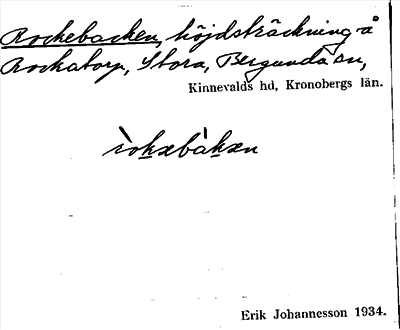 Rockebacken, höjdsträckning å
Rockatorp, Stora, Bergunda sn,
Kinnevalds hd, Kronobergs län.
Erik Johannesson 1934.